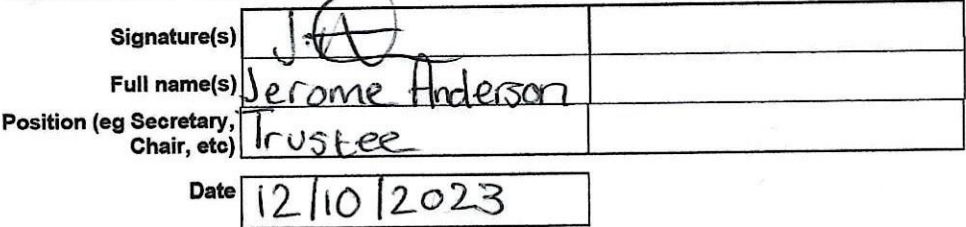 Signature(s) J.A
Full name(s) Jerome Anderson
Position (eg Secretary, Trustee
Chair, etc)
Date 12/10/2023